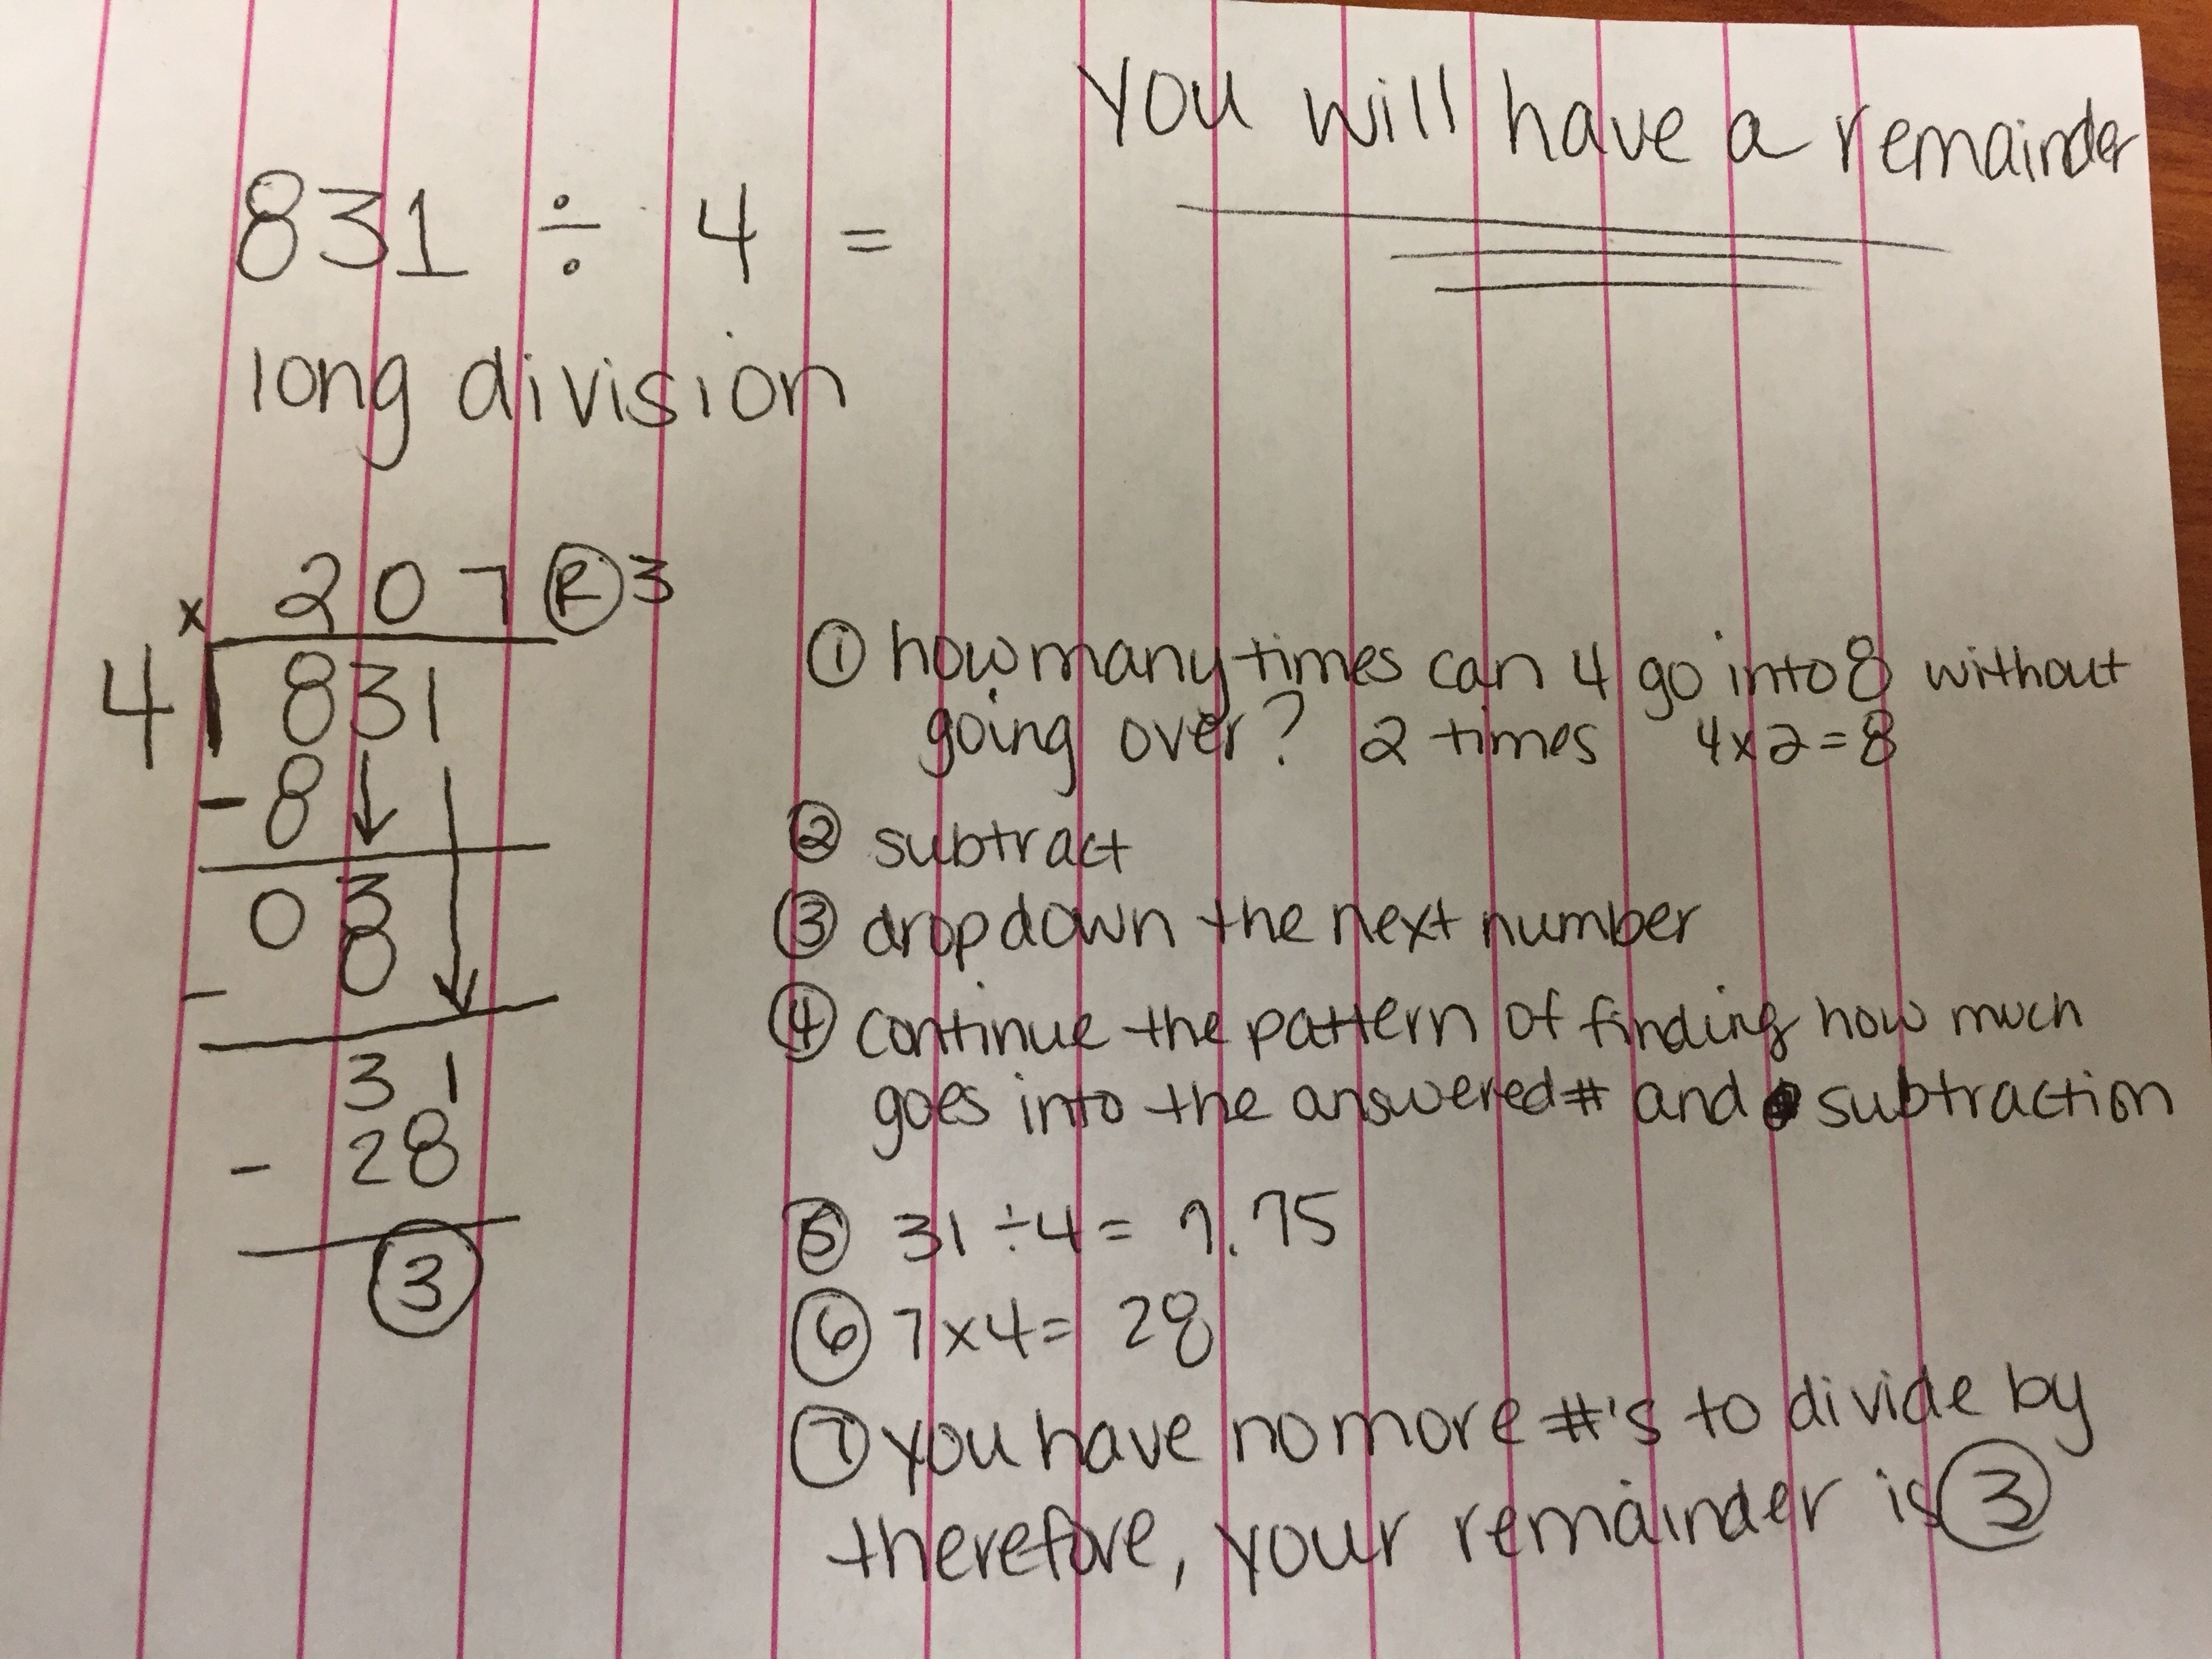 You will have a remainder
831 ÷ 4 =
long division
x 2 0 7 R 3
4 831
- 8
0 3
- 0
3 1
- 28
3
1 how many times can 4 go into 8 without
going over? 2 times 4x2=8
2 subtract
3 drop down the next number
4 continue the pattern of finding how much
goes into the answered # and subtraction
5 31 ÷ 4 = 7.75
6 7x4= 28
7 you have no more #'s to divide by
therefore, your remainder is 3